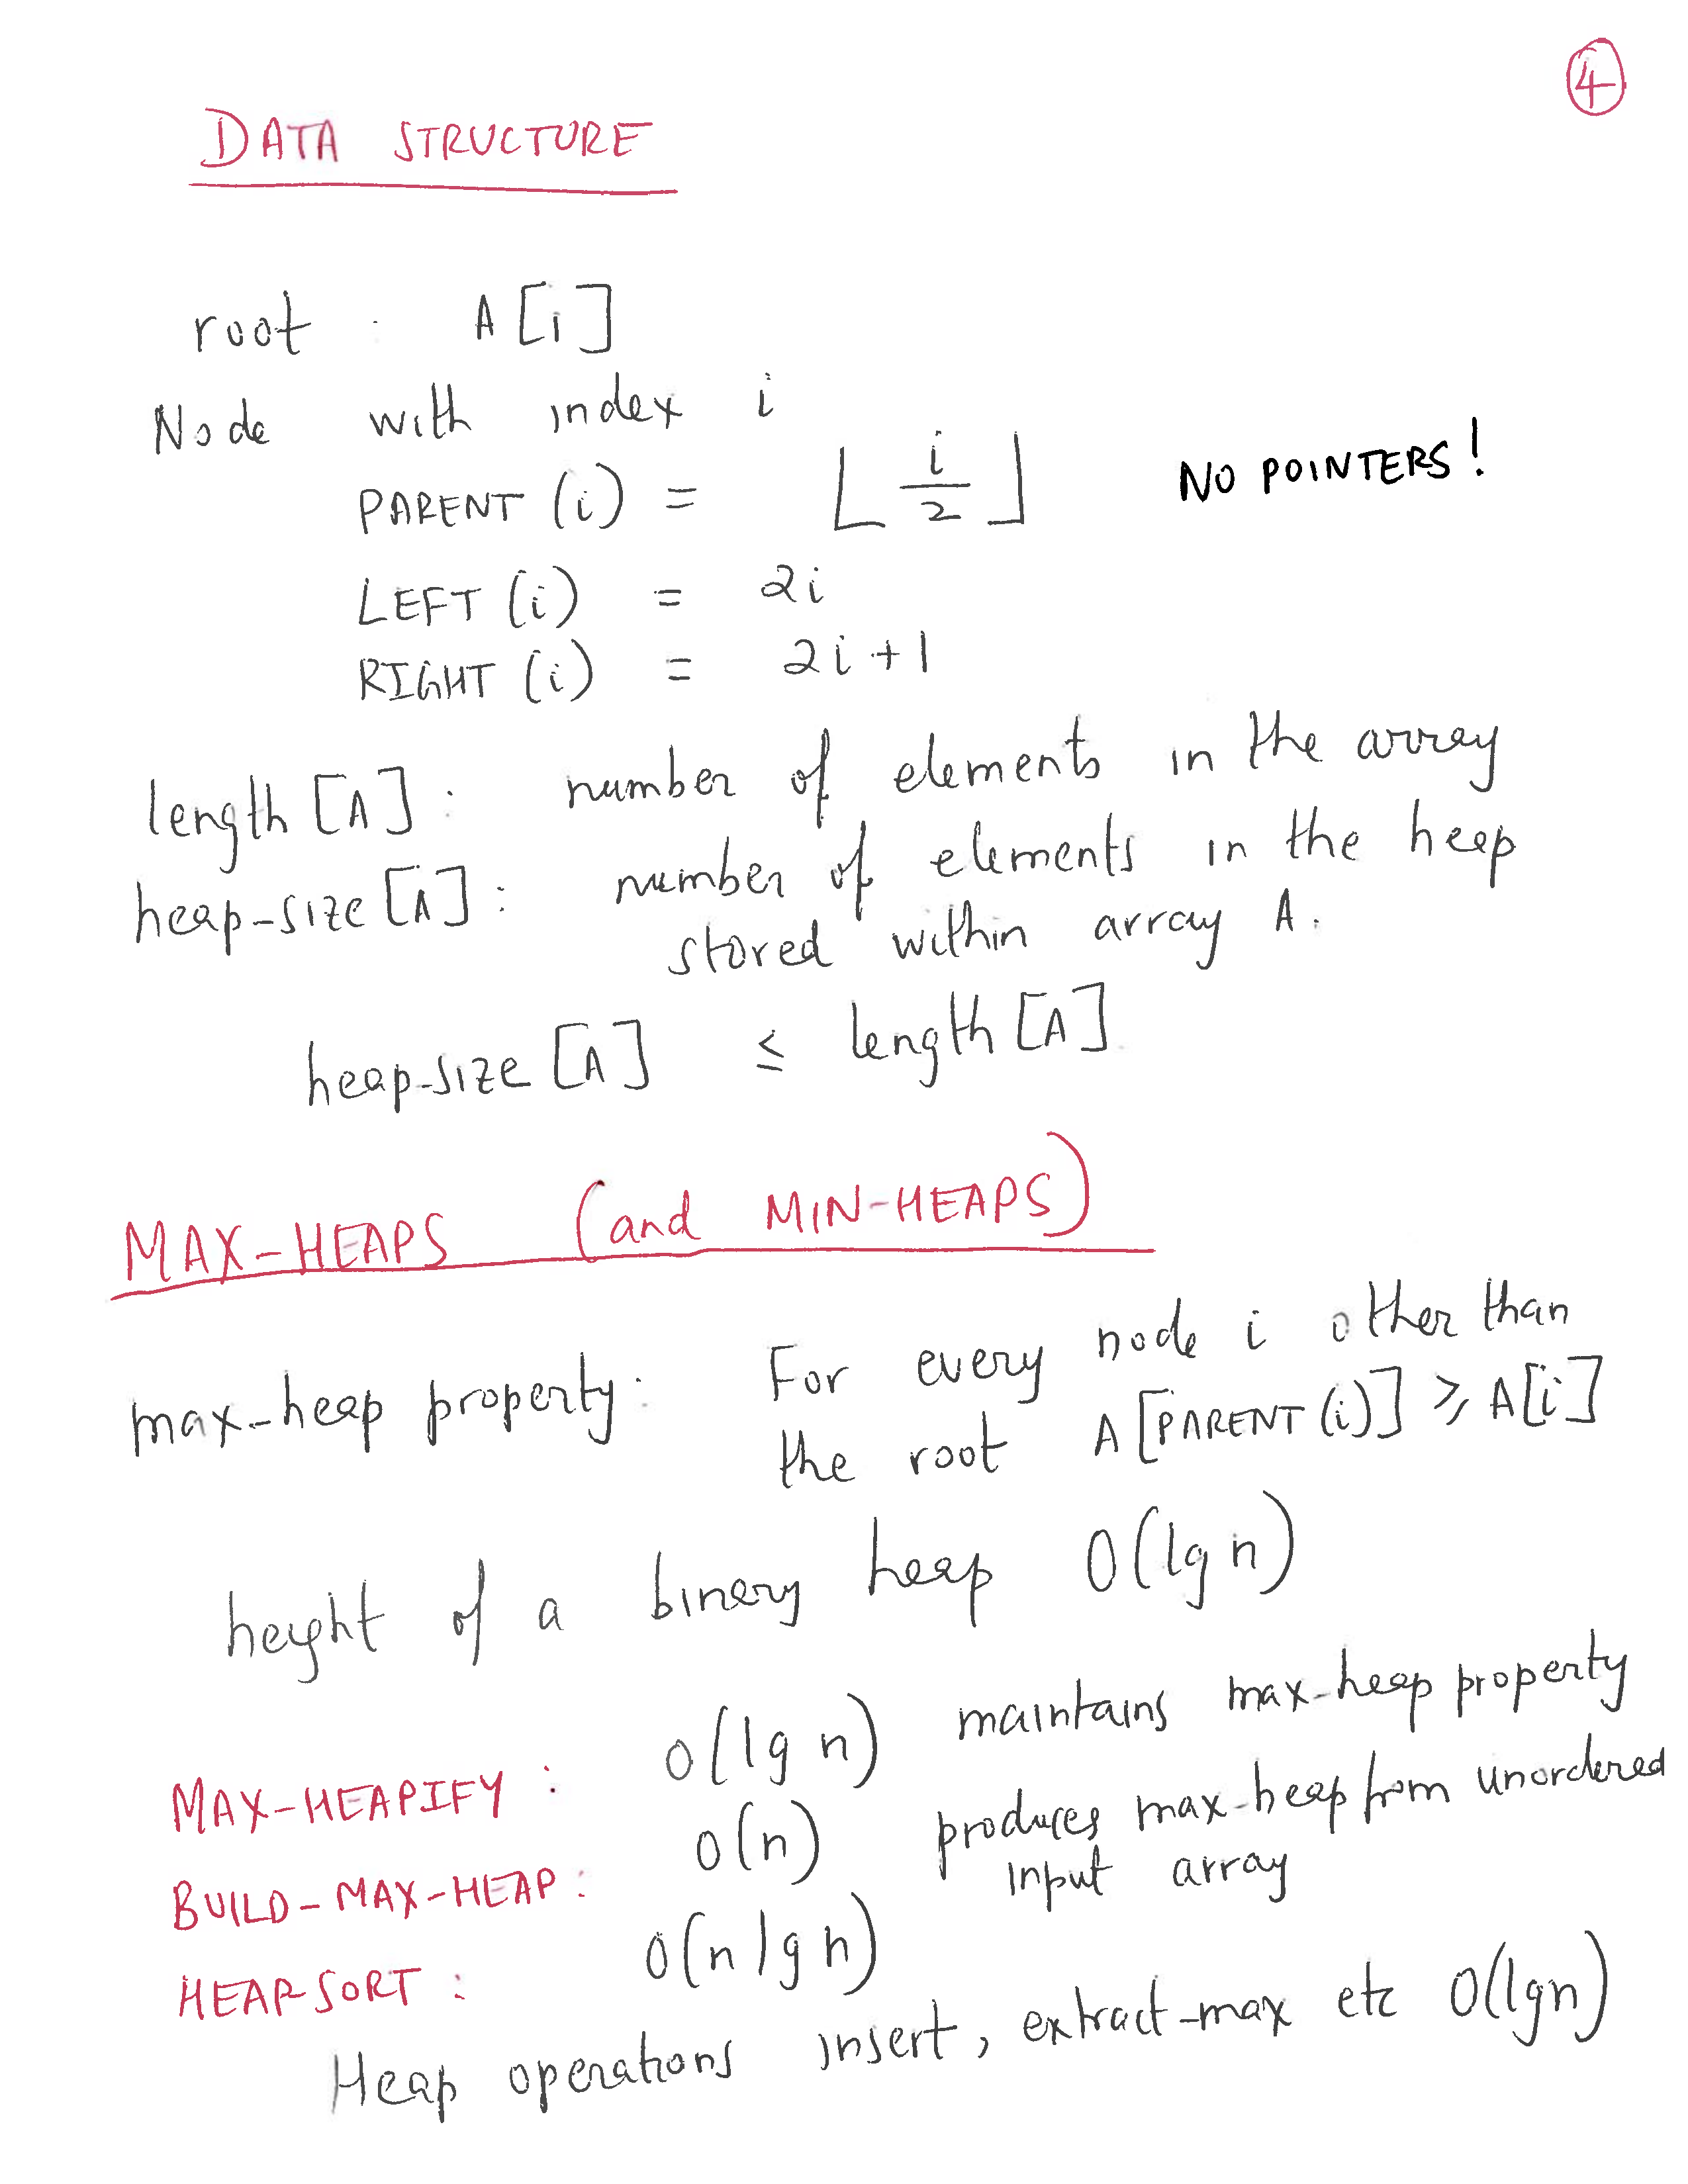 4
DATA STRUCTURE
root : A[i]
Node with index i
PARENT (i) = ⌊ i/2 ⌋ NO POINTERS!
LEFT (i) = 2i
RIGHT (i) = 2i+1
length [A] : number of elements in the array
heap-size [A] : number of elements in the heap
stored within array A.
heap-size [A] ≤ length [A]
MAX-HEAPS (and MIN-HEAPS)
max-heap property: For every node i other than
the root A [PARENT (i)] ≥ A[i]
height of a binary heap O(lg n)
MAX-HEAPIFY : O(lg n) maintains max-heap property
BUILD-MAX-HEAP : O(n) produces max-heap from unordered
input array
HEAPSORT : O(n lg n)
Heap operations insert, extract-max etc O(lg n)